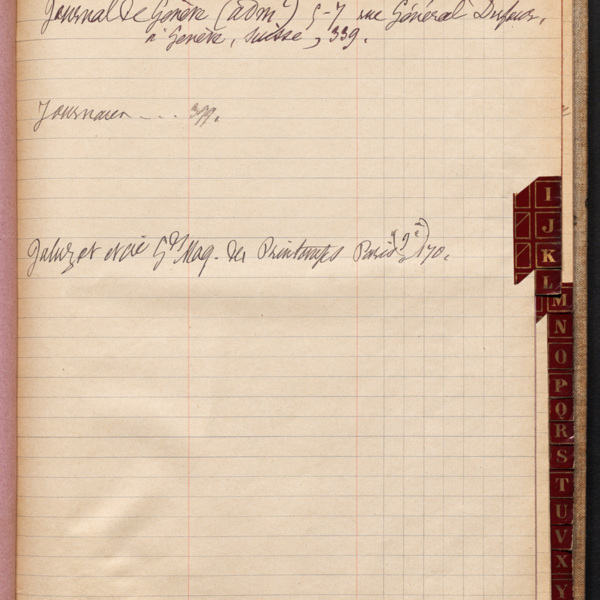 Journal de Genève (adm^n) 5-7 rue Général Dufour,
à Genève, Suisse, 339.
Journaux - - . . 399.
Jaluzot et cie Gds Mag. du Printemps Paris (9e) 170.
I
J
K
L
M
N
O
P
Q
R
S
T
U
V
X
Y